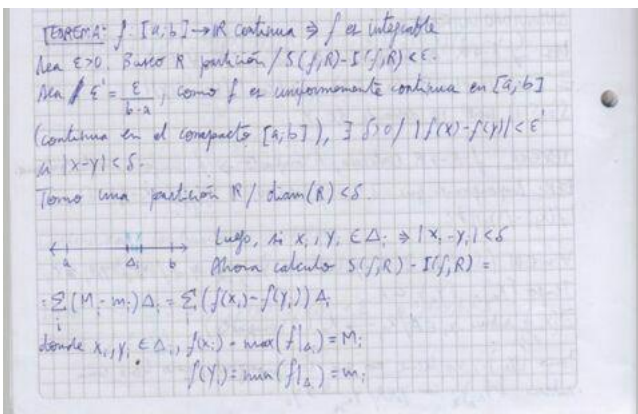 TEOREMA: f: [a;b] → IR continua ⇒ f es integrable
Sea ε>0. Busco R partición / S(f,R)-I(f,R) < ε.
Sea ε' = ε/(b-a), como f es uniformemente continua en [a;b]
(continua en el compacto [a;b]), ∃ δ>0 / |f(x)-f(y)| < ε'
si |x-y| < δ.
Tomo una partición R / diam(R) < δ.
Luego, si xᵢ, yᵢ ∈ Δᵢ ⇒ |xᵢ-yᵢ| < δ
a Δᵢ b
Ahora calculo S(f,R) - I(f,R) =
= Σᵢ (Mᵢ - mᵢ) Δᵢ = Σᵢ (f(xᵢ) - f(yᵢ)) Δᵢ
donde xᵢ, yᵢ ∈ Δᵢ, f(xᵢ) = max(f|Δᵢ) = Mᵢ
f(yᵢ) = min(f|Δᵢ) = mᵢ